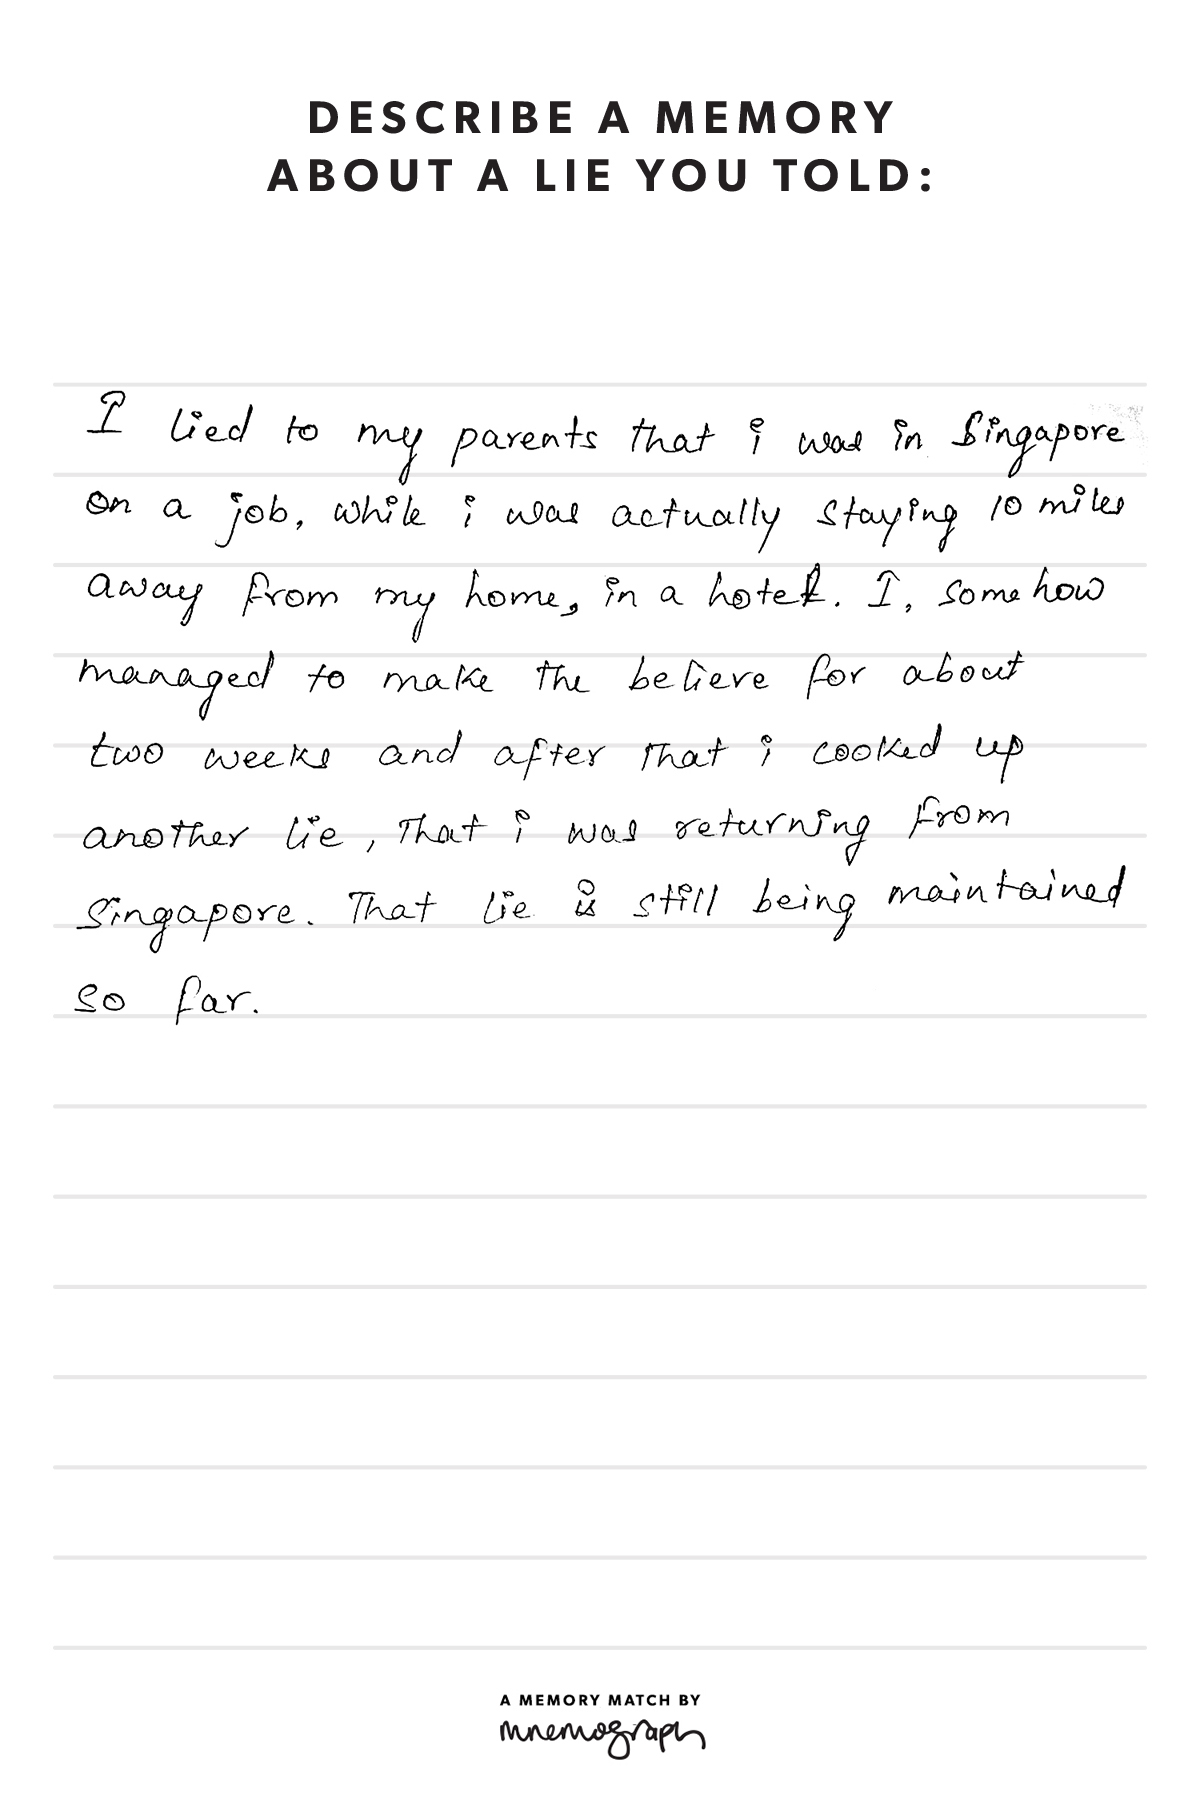 DESCRIBE A MEMORY
ABOUT A LIE YOU TOLD:
I lied to my parents that i was in Singapore
on a job, while i was actually staying 10 miles
away from my home, in a hotel. I, somehow
managed to make the believe for about
two weeks and after that i cooked up
another lie, that i was returning from
Singapore. That lie is still being maintained
so far.
A MEMORY MATCH BY
mnemograph